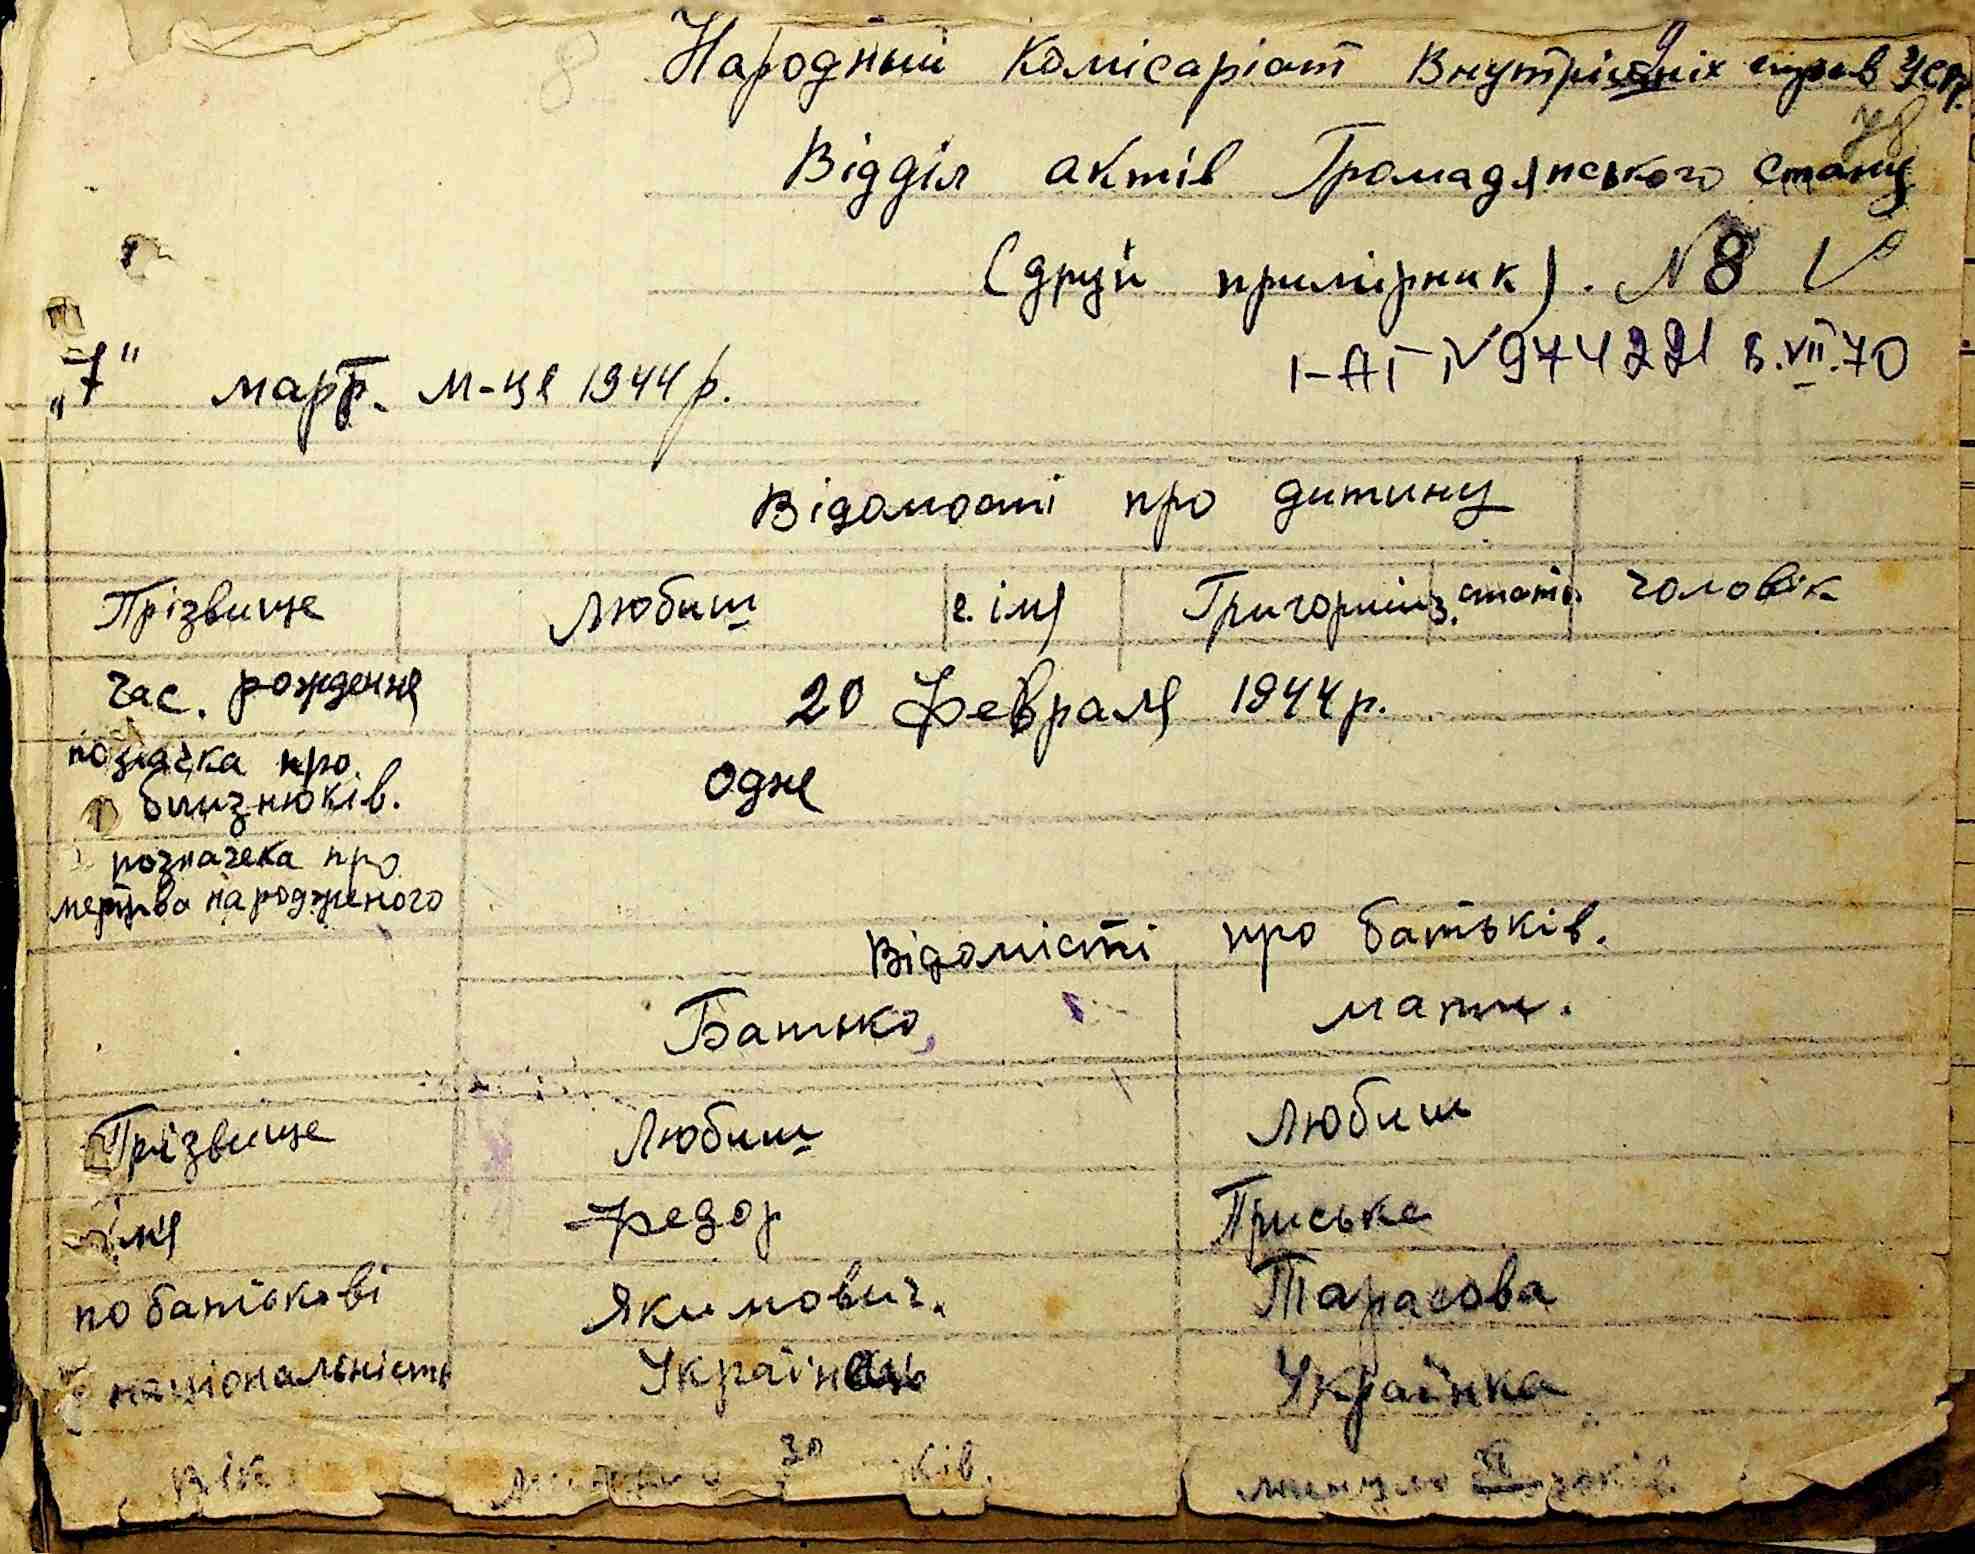 8
Народный Комісаріат Внутрішніх справ УСРР.
78
Відділ актів Громадянського стану
(другй примірник). N 8 V
I-АГ N 974221 8.VII.70
„7" март. м-ця 1944 р.
Відомості про дитину
Прізвище Любиш 2. імя Григорий 3. стать. чоловік
Час. рождення 20 Февраля 1944 р.
позначка про близнюків. одне
позначека про мертво народженого
Відомісті про батьків.
Батько мати.
Прізвище Любиш Любиш
імя Федор Приська
по батькові Якимович. Тарасова
національність Українець Українка
Вік 30 минуло років.